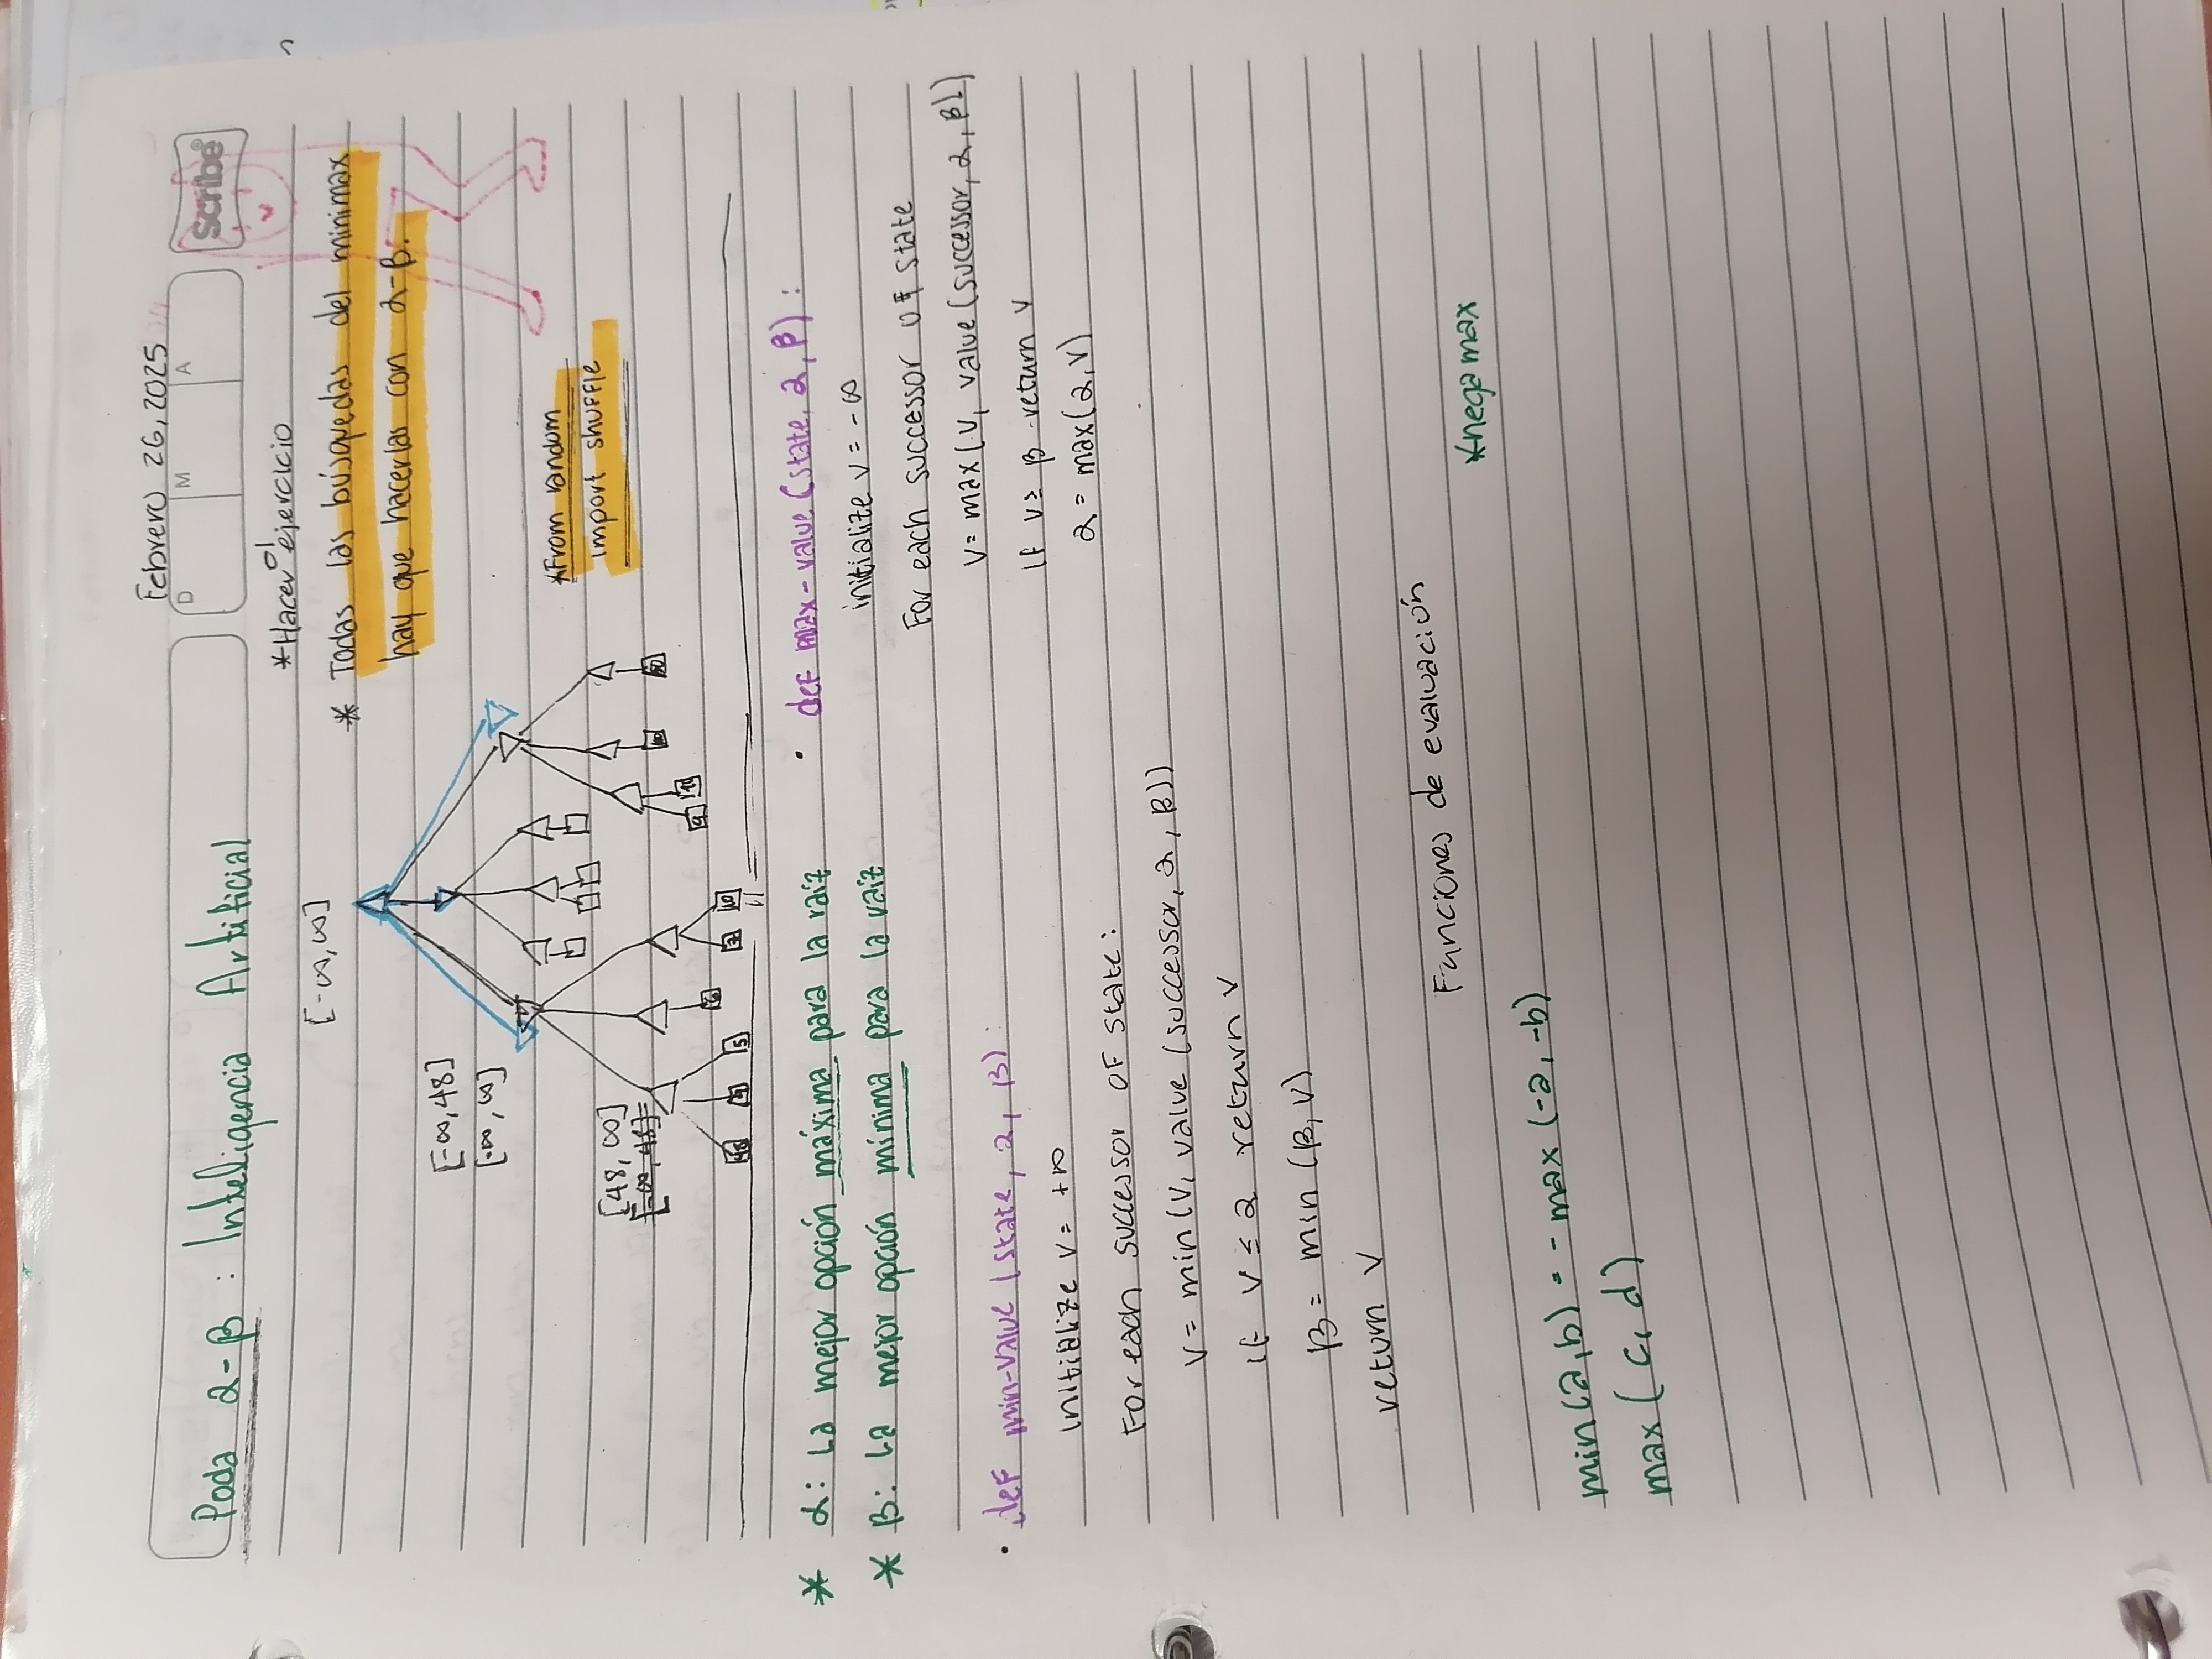 Febrero 26, 2025
D M A
Scribe
Poda α-β : Inteligencia Artificial
*Hacer el ejercicio
[-∞,∞]
* Todas las búsquedas del minimax
hay que hacerlas con α-β.
[-∞,48]
[-∞,∞]
*From random
import shuffle
[48, ∞]
[-∞, 48]
9
6
5
7 10
* α: La mejor opción máxima para la raíz
* β: La mejor opción mínima para la raíz
• def max-value (state, α, β) :
initialize v = -∞
For each successor of state
v= max(v, value (successor, α, β))
if v≥ β return v
α = max(α,v)
• def min-value (state, α, β) :
initialize v = +∞
For each successor of state:
v= min(v, value (successor, α, β))
if v ≤ α return v
β = min (β, v)
return v
Funciones de evaluación
*negamax
min(a,b) = - max (-a, -b)
max (c, d)